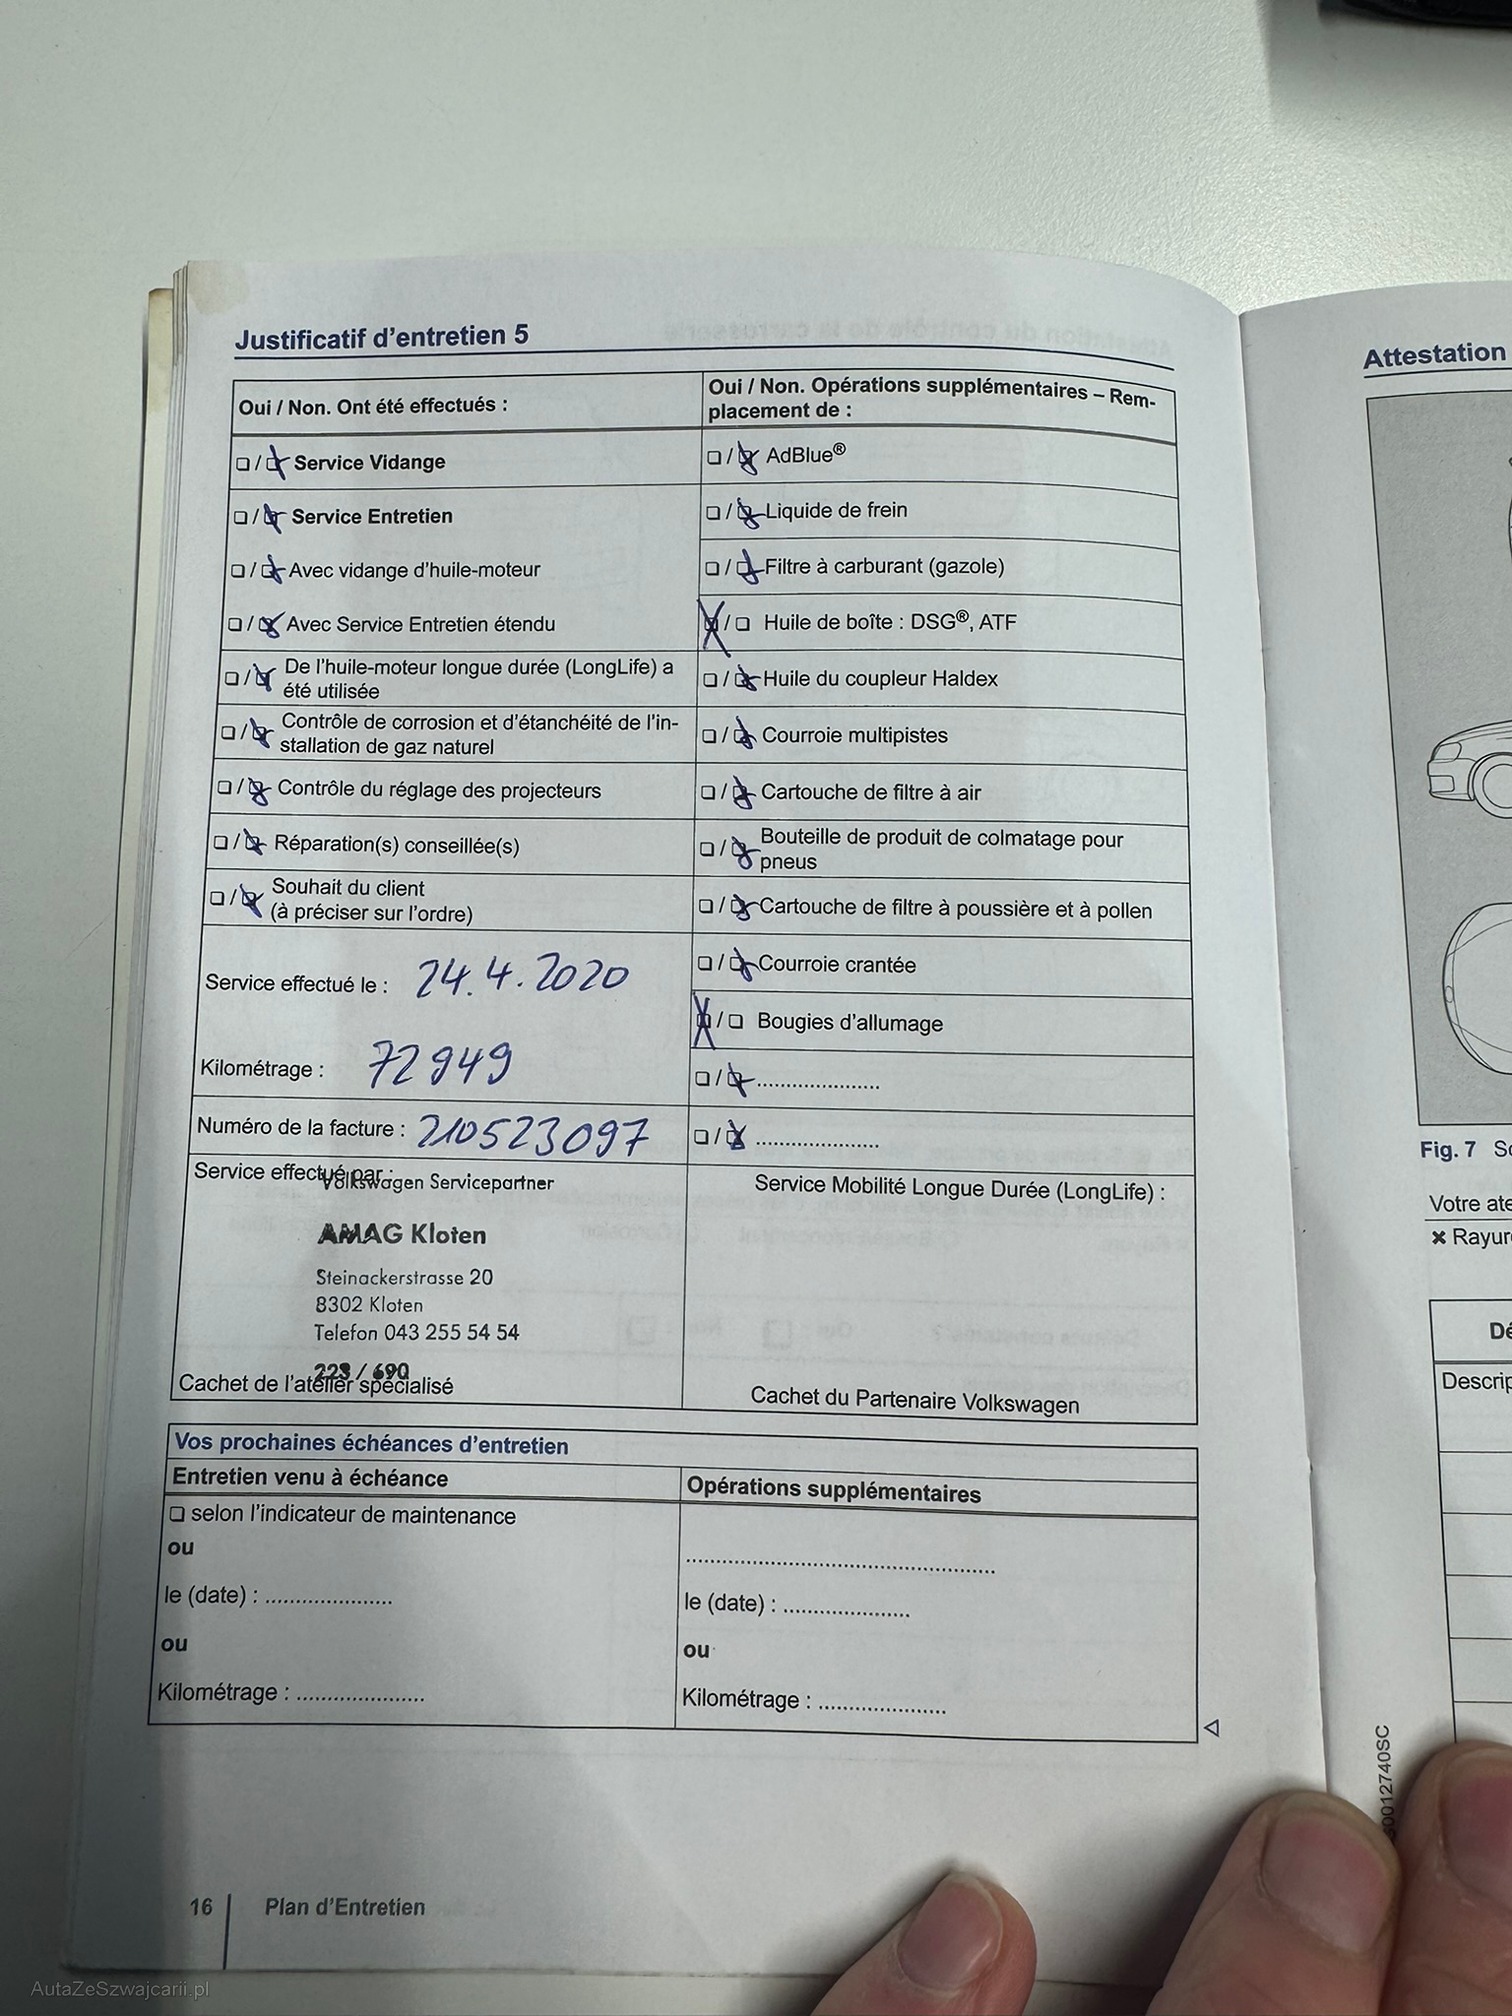 Justificatif d'entretien 5
Attestation
Oui / Non. Ont été effectués :
❏ / ❏ Service Vidange
❏ / ❏ Service Entretien
❏ / ❏ Avec vidange d'huile-moteur
❏ / ❏ Avec Service Entretien étendu
❏ / ❏ De l'huile-moteur longue durée (LongLife) a
été utilisée
❏ / ❏ Contrôle de corrosion et d'étanchéité de l'in-
stallation de gaz naturel
❏ / ❏ Contrôle du réglage des projecteurs
❏ / ❏ Réparation(s) conseillée(s)
❏ / ❏ Souhait du client
(à préciser sur l'ordre)
Service effectué le : 24.4.2020
Kilométrage : 72949
Numéro de la facture : 210523097
Service effectué par :
Volkswagen Servicepartner
AMAG Kloten
Steinackerstrasse 20
8302 Kloten
Telefon 043 255 54 54
223 / 690
Cachet de l'atelier spécialisé
Oui / Non. Opérations supplémentaires – Rem-
placement de :
❏ / ❏ AdBlue®
❏ / ❏ Liquide de frein
❏ / ❏ Filtre à carburant (gazole)
❏ / ❏ Huile de boîte : DSG®, ATF
❏ / ❏ Huile du coupleur Haldex
❏ / ❏ Courroie multipistes
❏ / ❏ Cartouche de filtre à air
❏ / ❏ Bouteille de produit de colmatage pour
pneus
❏ / ❏ Cartouche de filtre à poussière et à pollen
❏ / ❏ Courroie crantée
❏ / ❏ Bougies d'allumage
❏ / ❏ .....................
❏ / ❏ .....................
Service Mobilité Longue Durée (LongLife) :
Cachet du Partenaire Volkswagen
Vos prochaines échéances d'entretien
Entretien venu à échéance
❏ selon l'indicateur de maintenance
ou
le (date) : .....................
ou
Kilométrage : .....................
Opérations supplémentaires
...................................................
le (date) : .....................
ou
Kilométrage : .....................
16 Plan d'Entretien
Fig. 7
Votre
S0012740SC
AutaZeSzwajcarii.pl